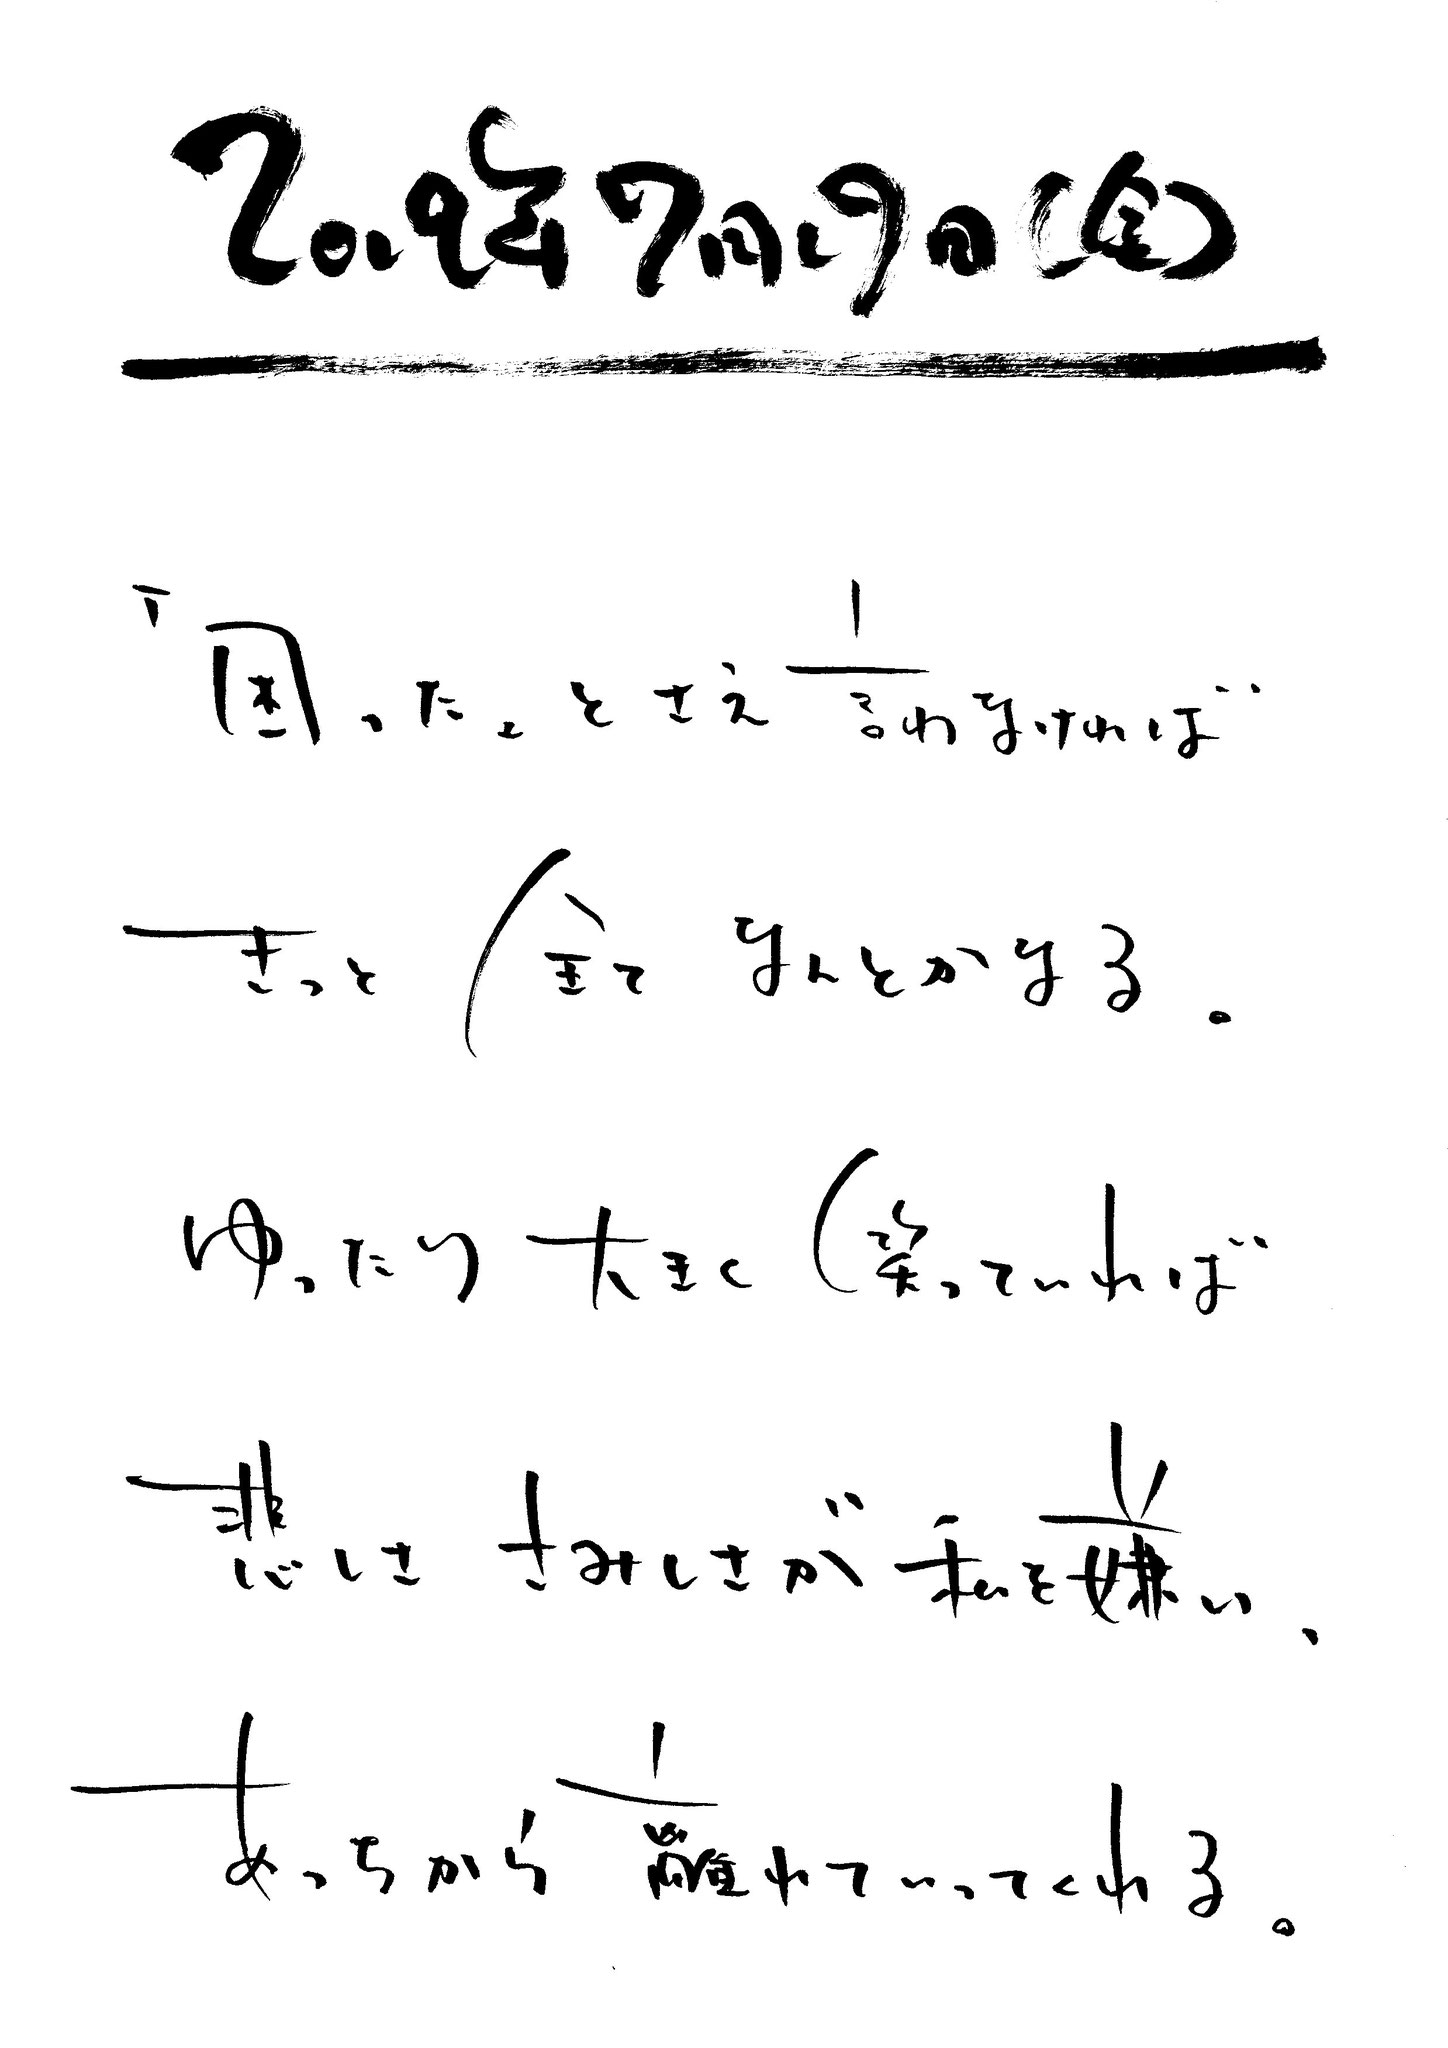 2019年7月19日(金)
「困った」とさえ言わなければ
きっと全てなんとかなる。
ゆったり大きく笑っていれば
悲しささみしさが私を嫌い、
あっちから離れていってくれる。